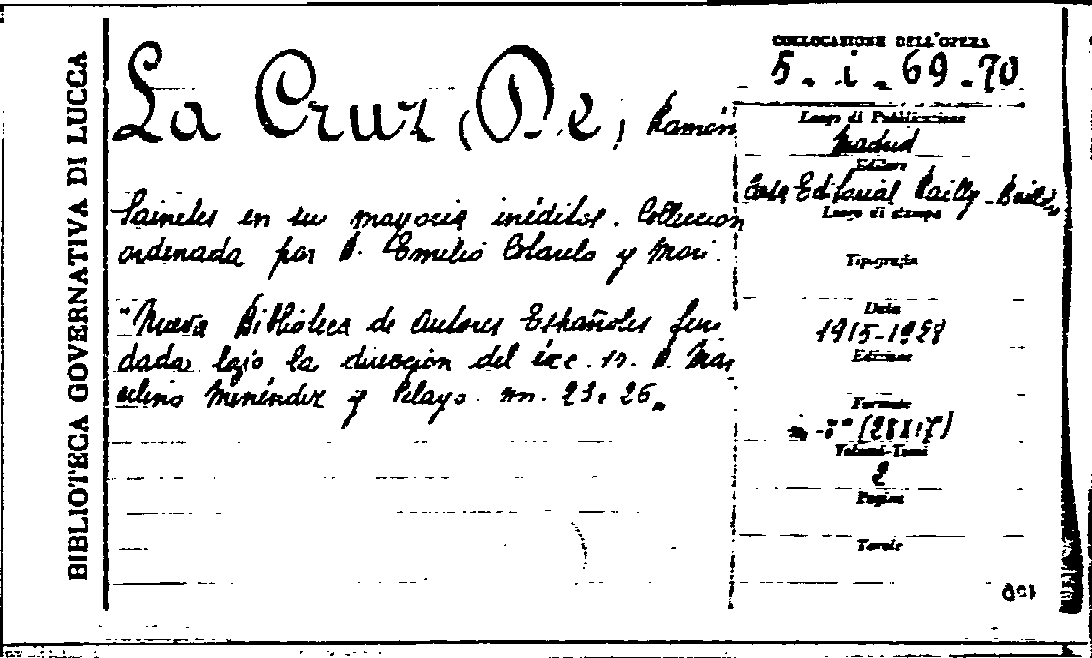 BIBLIOTECA GOVERNATIVA DI LUCCA
La Cruz (De) Ramón
Sainetes en su mayoria inéditos. Colleccion
ordenada por D. Emilio Cotarelo y Mori.
"Nueva Biblioteca de Autores Españoles fun
dada bajo la dirección del exc. D. Mar
celino Menéndez y Pelayo nn. 23. 26"
COLLOCAZIONE DELL'OPERA
5. i. 69-70
Luogo di Pubblicazione
Madrid
Editore
Casa Editorial Bailly-Bailli
Luogo di stampa
Tipografia
Data
1915-1928
Edizione
Formato
(28X17)
Volumi-Tomi
2
Pagine
Tavole